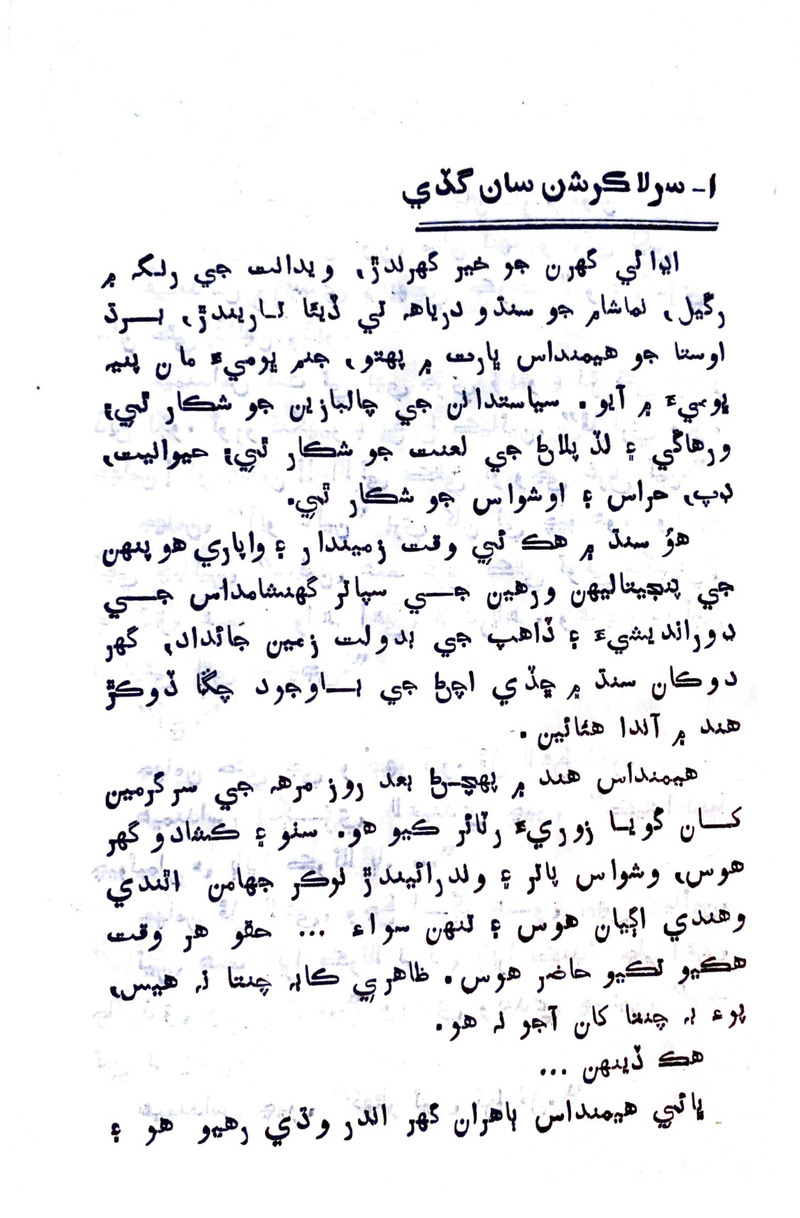 ۱- سرلا ڪرشن سان گڏي
اڍائي گهرن جو خير گهرندڙ، ويدانت جي رنگ ۾
رڱيل، نماشام جو سنڌو درياهه تي ڏيئا تاريندڙ، ٻرڌ
اوستا جو هيمنداس ڀارت ۾ پهتو، جنم ڀوميءَ مان پنيه
ڀوميءَ ۾ آيو. سياستدانن جي چالبازين جو شڪار ٿي؛
ورهاڱي ۽ لڏ پلاڻ جي لعنت جو شڪار ٿي؛ حيوانيت،
ڊپ، حراس ۽ اوشواس جو شڪار ٿي.
هوُ سنڌ ۾ هڪ ئي وقت زميندار ۽ واپاري هو پنهن
جي پنجيتاليهن ورهين جي سپاٽر گهنشامداس جي
دورانديشيءَ ۽ ڏاهپ جي بدولت زمين جائداد، گهر
دوڪان سنڌ ۾ ڇڏي اچڻ جي باوجود چڱا ڏوڪڙ
هند ۾ آندا هئائين.
هيمنداس هند ۾ پهچڻ بعد روز مرهه جي سرگرمين
کان گويا زوريءَ رٽائر ڪيو هو. سٺو ۽ ڪشادو گهر
هوس، وشواس پاتر ۽ وندرائيندڙ نوڪر جهامن اٿندي
وهندي اڳيان هوس ۽ تنهن سواءِ ... حقو هر وقت
هڪيو تڪيو حاضر هوس. ظاهري ڪابہ چنتا نہ هيس،
پوءِ بہ چنتا کان آجو نہ هو.
هڪ ڏينهن ...
ڀائي هيمنداس ٻاهران گهر اندر وڌي رهيو هو ۽